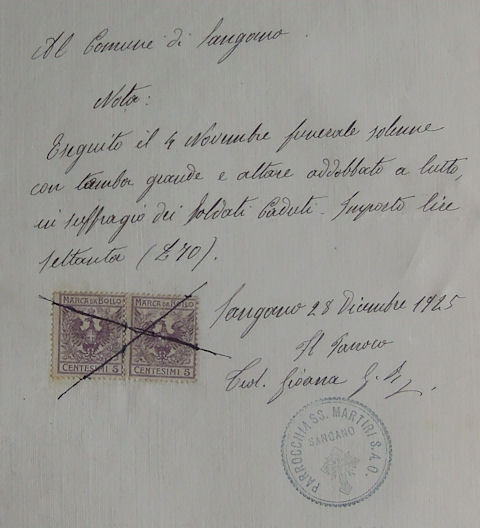 Al Comune di Sangano
Nota:
Eseguito il 4 Novembre funerale solenne
con tomba grande e altare addobbato a lutto,
in suffragio dei Soldati Caduti. Importo lire
settanta (£70).
MARCA DA BOLLO MARCA DA BOLLO
CENTESIMI 5 CENTESIMI 5
Sangano 28 Dicembre 1925
Il Parroco
Teol. Gioana
PARROCCHIA SS. MARTIRI S.A.O.
SANGANO